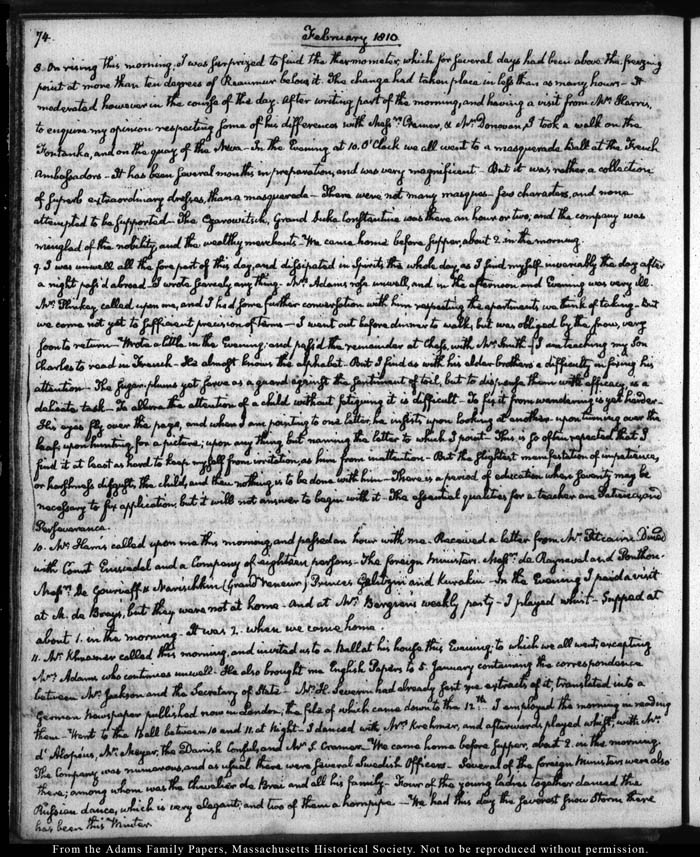 74.
February 1810.
8. On rising this morning, I was surprized to find the thermometer, which for several days had been above the freezing
point at more than ten degrees of Reaumur below it. The change had taken place in less than as many hours — It
moderated however in the course of the day. After writing part of the morning, and having a visit from Mr. Harris,
to enquire my opinion respecting some of his differences with Messrs. Cramer, & Mr. Donovan, I took a walk on the
Fontanka, and on the quay of the Neva — In the Evening at 10. O'Clock we all went to a masquerade Ball at the French
Ambassadors — It has been several months in preparation, and was very magnificent — But it was rather a collection
of superb extraordinary dresses, than a masquerade — There were not many masques — few characters, and none
attempted to be supported — The Czarowitsch, Grand Duke Constantine was there an hour or two, and the company was
mingled of the nobility, and the wealthy merchants — We came home before supper, about 2. in the morning.
9. I was unwell all the fore part of this day, and dissipated in Spirits the whole day, as I find myself invariably the day after
a night pass'd abroad — I wrote scarcely any thing — Mrs. Adams rose unwell, and in the afternoon and Evening was very ill.
Mr. Plinkey called upon me, and I had some further conversation with him respecting the apartments we think of taking — But
we come not yet to sufficient precision of terms — I went out before dinner to walk, but was obliged by the snow, very
soon to return — Wrote a little in the Evening; and pass'd the remainder at Chess, with Mr. Smith — I am teaching my Son
Charles to read in French — He almost knows the alphabet — But I find as with his elder brothers a difficulty in fixing his
attention — The sugar plums yet serve as a guard against the sentiment of toil, but to dispense them with efficacy, is a
delicate task — To allure the attention of a child without fatiguing it is difficult — To fix it from wandering is yet harder —
His eyes fly over the page, and when I am pointing to one letter, he insists upon looking at another — upon turning over the
leaf, upon hunting for a picture; upon any thing but naming the letter to which I point — This is so often repeated that I
find it at least as hard to keep myself from irritation, as him from inattention — But the slightest manifestation of impatience,
or harshness disgusts the child, and then nothing is to be done with him — There is a period of education where severity may be
necessary to fix application, but it will not answer to begin with it — The essential qualities for a teacher are Patience, and
Perseverance.
10. Mr. Harris called upon me this morning, and passed an hour with me. Received a letter from Mr. Pitcairn. Dined
with Count Einsiedel and a Company of eighteen persons — The foreign Ministers. Messrs. de Rayneval and Ponthon —
Messrs. De Gourieff & Narishkin (Grand Veneur) Princes Galitzin and Kurakin — In the Evening I paid a visit
at M. de Bray's, but they were not at home — And at Mr. Bergien's weekly party — I played whist — Supped at
about 1. in the morning — It was 2. when we came home.
11. Mr. Krehmer called this morning, and invited us to a Ball at his house this Evening; to which we all went, excepting
Mrs. Adams who continues unwell — He also brought me English Papers to 5. January containing the correspondence
between Mr. Jackson and the Secretary of State — Mr. H. Severin had already sent me extracts of it, translated into a
German Newspaper published now in London, the file of which came down to the 12th. — I employed the morning in reading
them — Went to the Ball between 10 and 11. at Night — I danced with Mrs. Krehmer, and afterwards played whist, with Mr.
d'Alopéus, Mr. Meyer, the Danish Consul, and Mr. S. Cramer — We came home before supper, about 2. in the morning.
The Company was numerous, and as usual there were several Swedish Officers — Several of the foreign Ministers were also
there; among whom was the Chevalier de Brai and all his family — Four of the young ladies together danced the
Russian dance, which is very elegant; and two of them a hornpipe — We had this day the severest snow Storm there
has been this Winter.
From the Adams Family Papers, Massachusetts Historical Society. Not to be reproduced without permission.